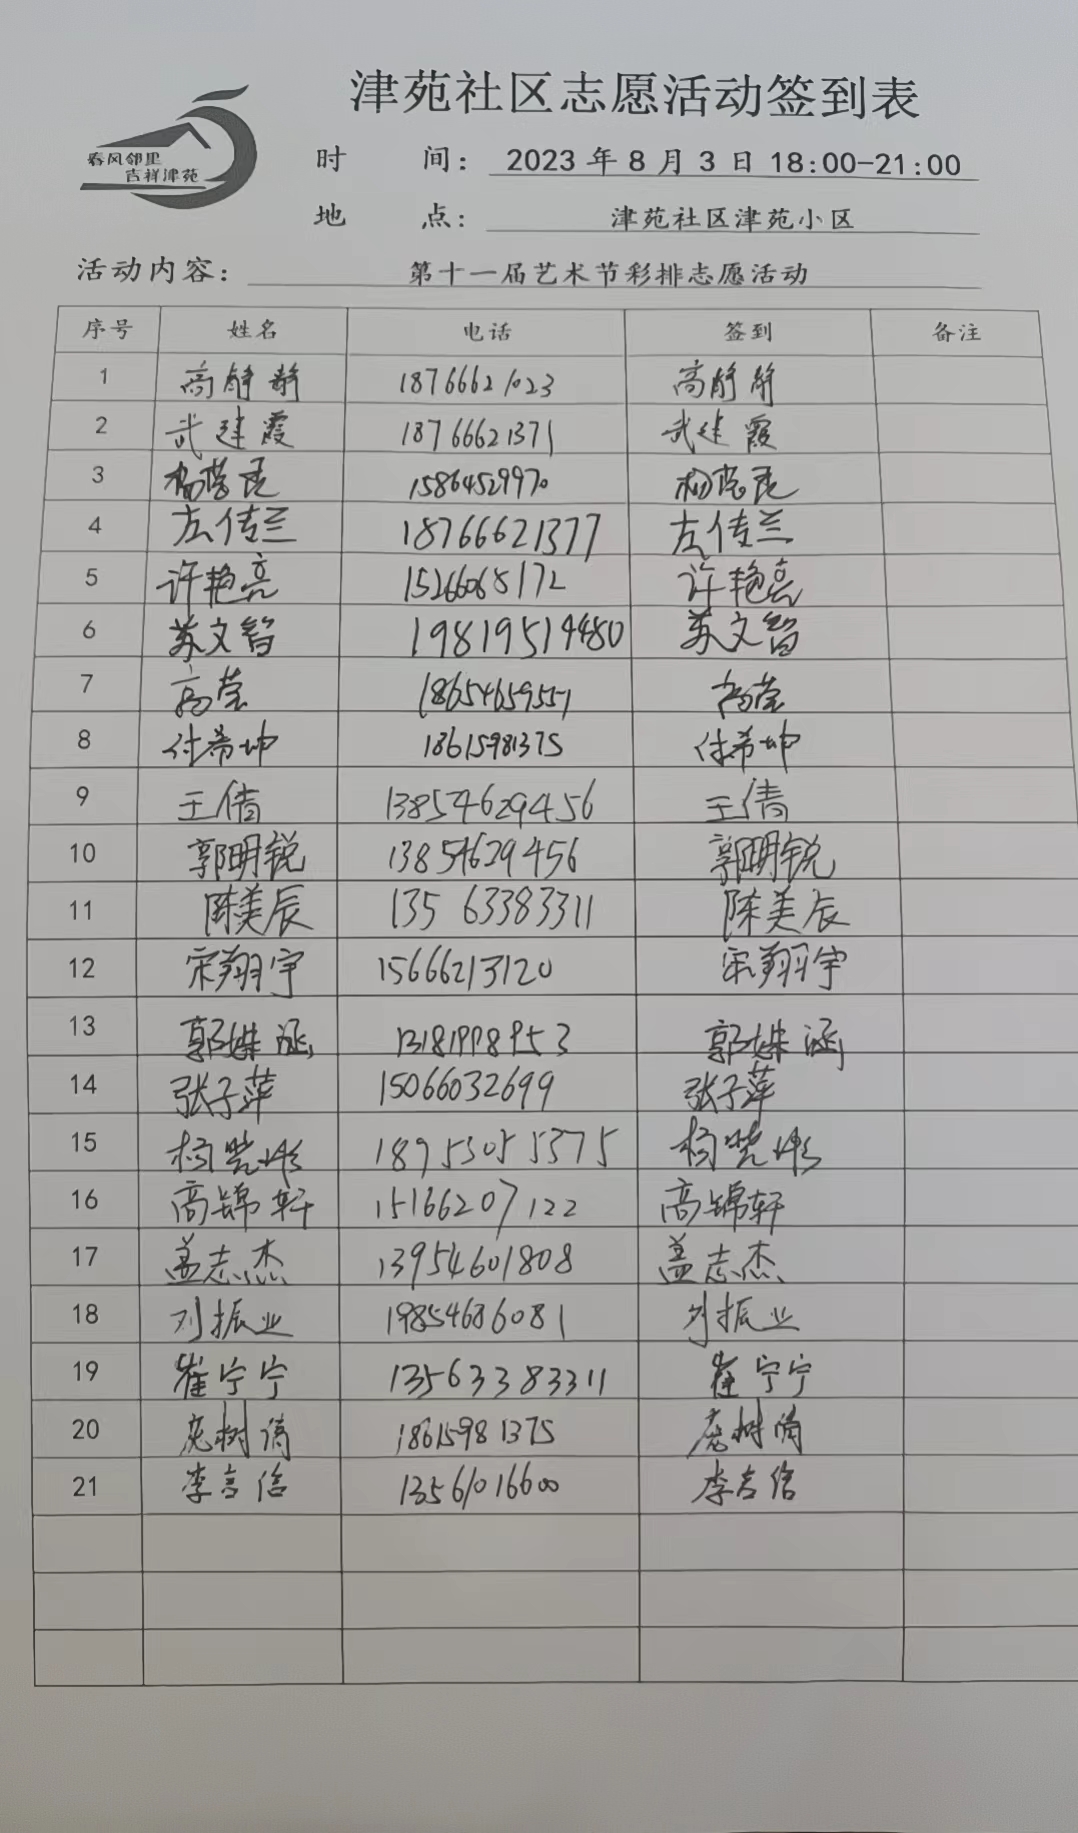 津苑社区志愿活动签到表
春风邻里
吉祥津苑
时 间: 2023年8月3日18:00-21:00
地 点: 津苑社区津苑小区
活动内容: 第十一届艺术节彩排志愿活动
序号 姓名 电话 签到 备注
1 高静静 18766621023 高静静
2 武建霞 18766621371 武建霞
3 15864529970
4 左传兰 18766621377 左传兰
5 许艳亮 15266068172 许艳亮
6 苏文智 19819514480 苏文智
7 高莹 18654659551 高莹
8 付希坤 18615981375 付希坤
9 王倩 13854629456 王倩
10 郭明锐 13854629456 郭明锐
11 陈美辰 13563383311 陈美辰
12 宋翔宇 15666213120 宋翔宇
13 郭姝涵 13181998953 郭姝涵
14 张子萍 15066032699 张子萍
15 杨晓彬 18953055375 杨晓彬
16 高锦轩 15166207122 高锦轩
17 盖志杰 13954601808 盖志杰
18 刘振业 19854686081 刘振业
19 崔宁宁 13563383311 崔宁宁
20 18615981375
21 李言信 13561016600 李言信